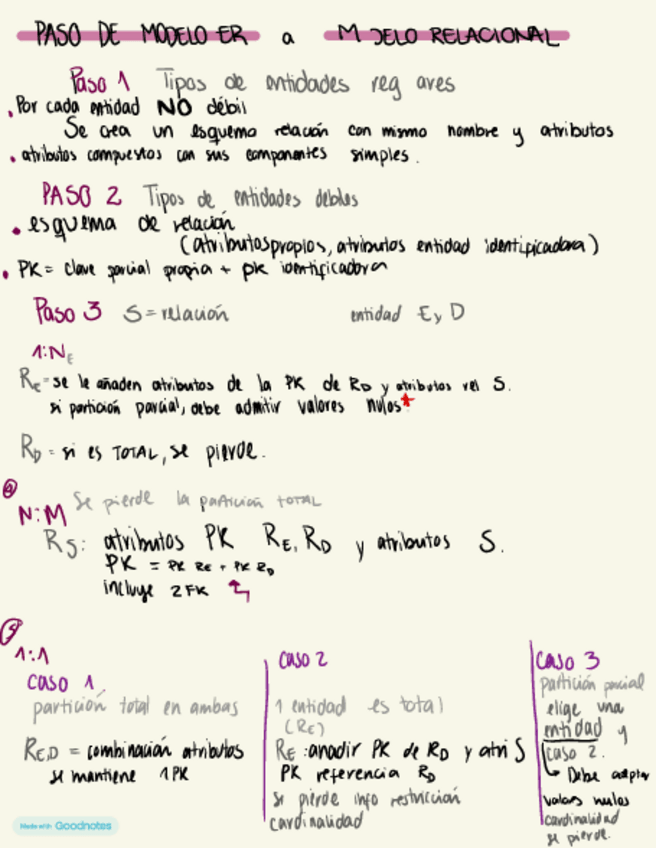 PASO DE MODELO ER a M DELO RELACIONAL
Paso 1 Tipos de entidades reg ares
. Por cada entidad NO débil
Se crea un esquema relación con mismo nombre y atributos
. atributos compuestos con sus componentes simples.
PASO 2 Tipos de entidades débiles
. esquema de relación
(atributos propios, atributos entidad identificadora)
. PK = clave parcial propia + pk identificadora
Paso 3 S = relación entidad E y D
1:N E
RE = se le añaden atributos de la PK de RD y atributos rel S.
si partición parcial, debe admitir valores nulos*
RD = si es TOTAL, se pierde.
4
N:M Se pierde la partición TOTAL
RS: atributos PK RE, RD y atributos S.
PK = PK RE + PK RD
incluye 2 FK
5
1:1
caso 1
partición total en ambas
RE,D = combinación atributos
se mantiene 1 PK
caso 2
1 entidad es total
(RE)
RE: anadir PK de RD y atri S
PK referencia RD
Se pierde info restricción
cardinalidad
caso 3
partición parcial
elige una
entidad y
caso 2.
Debe aceptar
valores nulos
cardinalidad
se pierde.
Made with Goodnotes